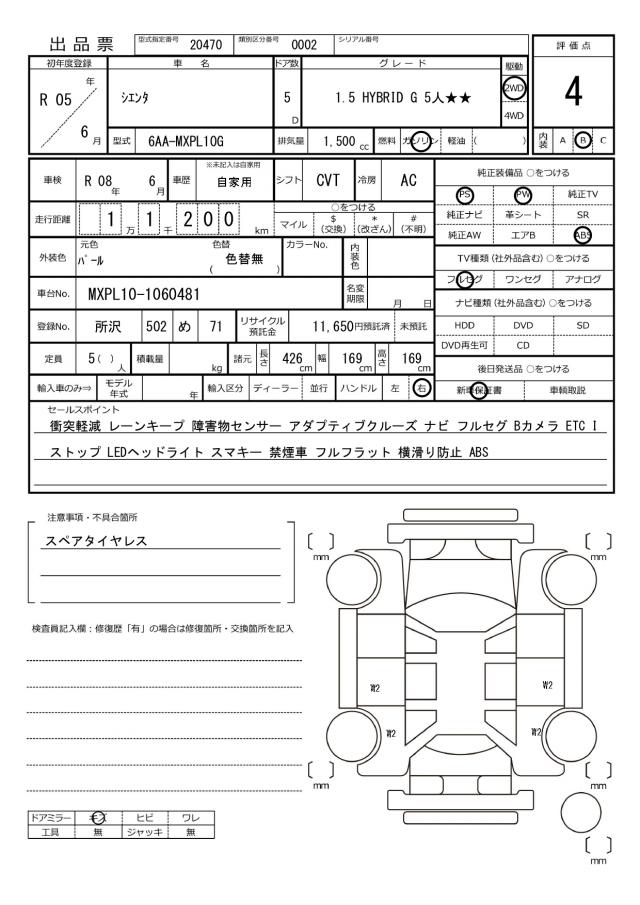 出品票 型式指定番号 20470 類別区分番号 0002 シリアル番号
評価点
4
初年度登録 車名 ドア数 グレード 駆動
R 05 年 6 月
シエンタ
5 D
1.5 HYBRID G 5人★★
2WD
4WD
型式 6AA-MXPL10G 排気量 1,500 cc 燃料 ガソリン 軽油 ( )
内装 A B C
車検 R 08 年 6 月 車歴 ※未記入は自家用 自家用 シフト CVT 冷房 AC
走行距離 1 万 1 千 2 0 0 km
○をつける
マイル $ (交換) * (改ざん) # (不明)
外装色 元色 パール 色替 ( 色替無 ) カラーNo. 内装色
車台No. MXPL10-1060481 名変期限 月 日
登録No. 所沢 502 め 71 リサイクル預託金 11,650円預託済 未預託
定員 5( ) 人 積載量 kg 諸元 長さ 426 cm 幅 169 cm 高さ 169 cm
輸入車のみ⇒ モデル年式 年 輸入区分 ディーラー 並行 ハンドル 左 右
純正装備品 ○をつける
PS PW 純正TV
純正ナビ 革シート SR
純正AW エアB ABS
TV種類 (社外品含む) ○をつける
フルセグ ワンセグ アナログ
ナビ種類 (社外品含む) ○をつける
HDD DVD SD
DVD再生可 CD
後日発送品 ○をつける
新車保証書 車輌取説
セールスポイント
衝突軽減 レーンキープ 障害物センサー アダプティブクルーズ ナビ フルセグ Bカメラ ETC I
ストップ LEDヘッドライト スマキー 禁煙車 フルフラット 横滑り防止 ABS
注意事項・不具合箇所
スペアタイヤレス
検査員記入欄：修復歴「有」の場合は修復箇所・交換箇所を記入
ドアミラー キズ ヒビ ワレ
工具 無 ジャッキ 無
〔 〕 mm
〔 〕 mm
W2
W2
W2
W2
〔 〕 mm
〔 〕 mm
〔 〕 mm